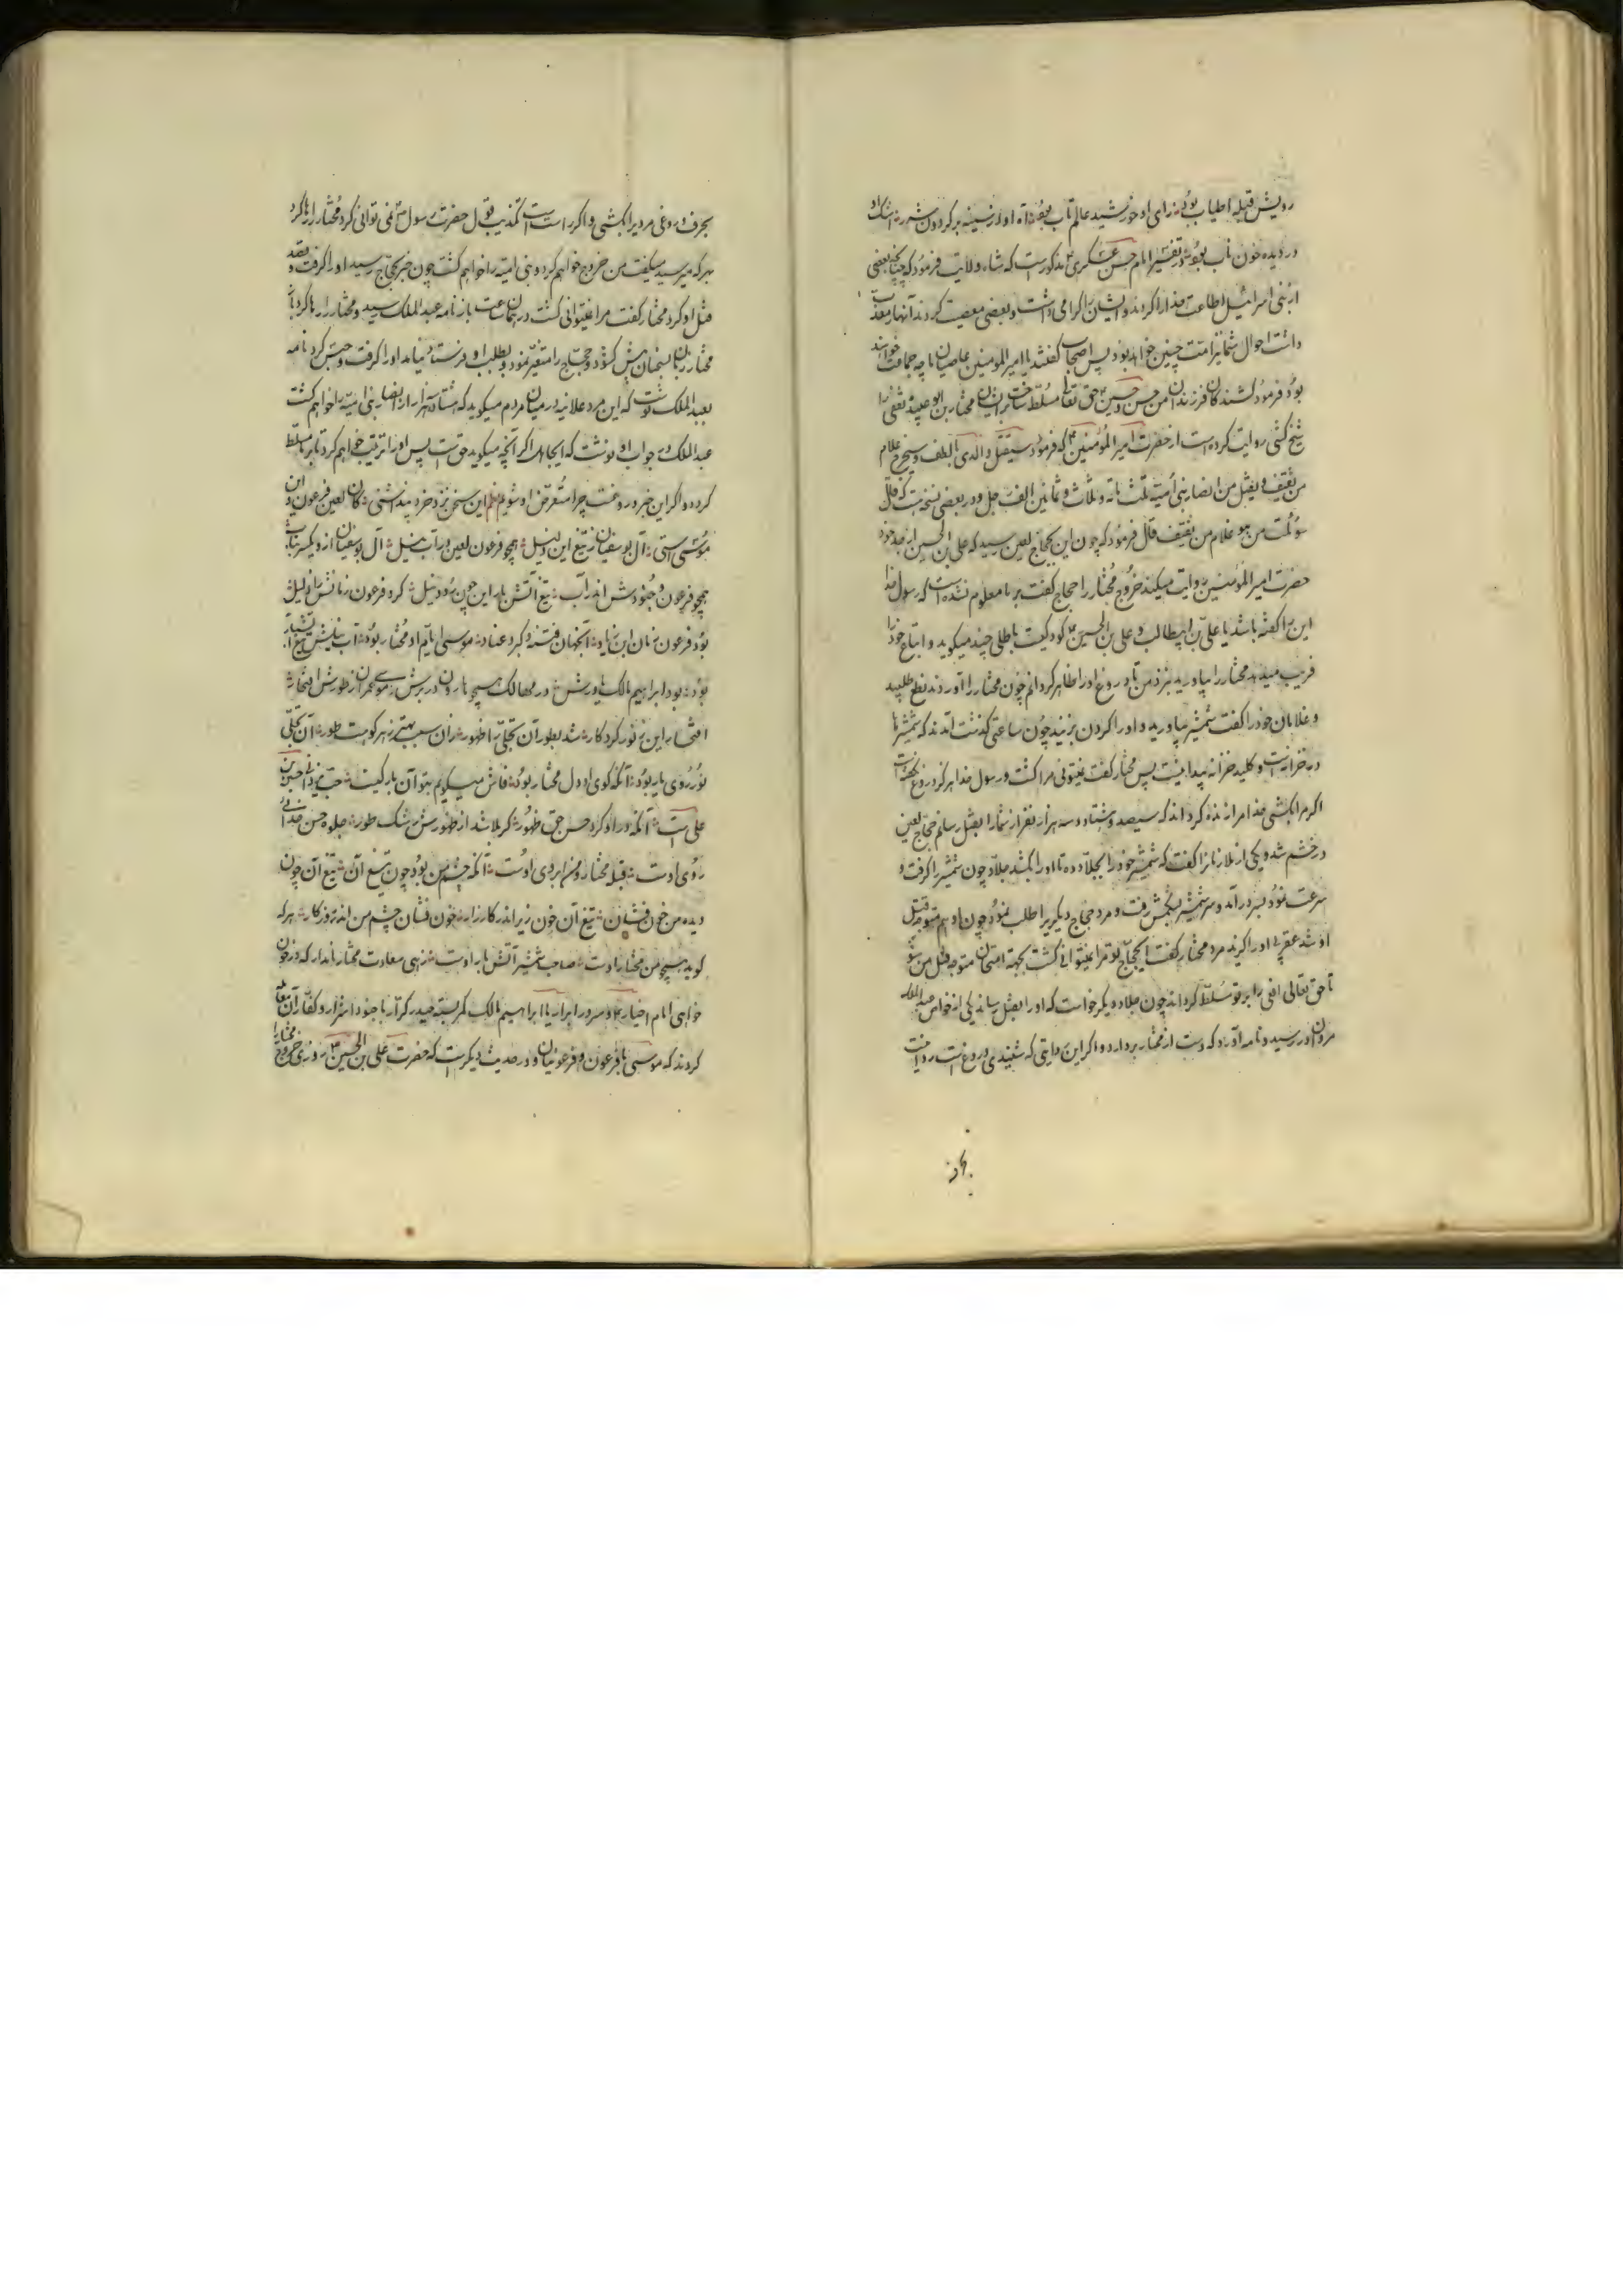 رویش قبله اطیاب بود رای او خورشید عالم تاب بود آه او از سینه بر کردون شرر اشک او
در دیده خون ناب بود در تفسیر امام حسن عسکری مذکورست که شاه ولایت فرمود که چنانچه بعضی
از بنی اسرائیل اطاعت خدا را کردند و ایشان را کرامی داشت و بعضی معصیت کردند آنها را معذب
داشت احوال شما نیز چنین خواهد بود پس اصحاب کفتند یا امیر المومنین عاصیان ما چه جماعت خواهند
بود فرمود کشندکان فرزندان من حسن و حسین حق تعالی مسلط ساخت بر ایشان مختار بن ابو عبیده ثقفی را
شیخ کشی روایت کرده است از حضرت امیر المؤمنین که فرمود سیقتل ولدی الطف و سیخرج غلام
من ثقیف و یقتل من انصار بنی امیه ثلث مائه و ثلاث و ثمانین الف رجل و در بعضی نسخست که قال
سوئلت من هو غلام من ثقیف قال فرمود که چون این بحجاج لعین رسید که علی بن الحسین از جد خود
حضرت امیر المؤمنین روایت میکند خروج مختار را حجاج کفت بر ما معلوم نشده است که رسول خدا
این را کفته باشد یا علی بن ابیطالب و علی بن الحسین کودکیست باطلی چند میکوید و اتباع خود را
فریب میدهد مختار را بیاورید نزد من تا دروغ او را ظاهر کردانم چون مختار را آوردند نطع طلبید
و غلامان خود را کفت شمشیر بیاورید و او را کردن بزنید چون ساعتی کذشت آمدند که شمشیرها
در خزانه است و کلید خزانه پیدا نیست پس مختار کفت نمیتوانی مرا کشت و رسول خدا هرکز دروغ نکفته است
اکر مرا بکشی خدا مرا زنده کرداند که سیصد و هشتاد و سه هزار نفر از شما را بقتل رسانم حجاج لعین
در خشم شد و یکی از ملازمانرا کفت که شمشیر خود را بجلاد ده تا او را بکشد جلاد چون شمشیر را کرفت و
سرعت نمود بسر در آمد و سر شمشیر بشکمش رفت و مرد حجاج دیکریرا طلب نمود چون او هم متوجه قتل
او شد عقربی او را کزید مرد مختار کفت ای حجاج تو مرا نمیتوانی کشت بجهة امتحان متوجه قتل من مشو
تا حق تعالی افعی را بر تو مسلط کرداند چون جلاد دیکر خواست که او را بقتل رساند یکی از خواص عبد الملک
مروان در رسید و نامه آورد که دست از مختار بردارد و اکر این روایتی که شنیدی دروغ است روا نیست
بحرف دروغی مردیرا بکشی و اکر راست است تکذیب قول حضرت رسول نمی توانی کرد مختار را رها کرد
بهر که میرسید میکفت من خروج خواهم کرد و بنی امیه را خواهم کشت چون خبر بحجاج رسید او را کرفت و قصد
قتل او کرد مختار کفت مرا نمیتوانی کشت در همان ساعت باز نامه عبد الملک رسید و مختار را رها کرد باز
مختار زبان بسخنان پیش کشود و حجاج را متغیر نمود و بطلب او فرستاد نیامد او را کرفت و حبس کرد نامه
بعبد الملک نوشت که این مرد علانیه در میان مردم میکوید که هشتاد هزار از انصار بنی امیه را خواهم کشت
عبد الملک در جواب او نوشت که ای جاهل اکر آنچه میکوید حق است پس او را تربیت خواهم کرد تا بر ما مسلط
کردد و اکر این خبر دروغست چرا متعرض او شویم نظم این سخن نزد خرد مند اشتی کان لعین فرعون و این
موسی استی آل بوسفیان ز تیغ این ذلیل همچو فرعون لعین در آب نیل آل بوسفیان از او یکسر بتاب
همچو فرعون و جنودش اندر آب تیغ آتش بار این چون رود نیل کرد فرعون زمانش را ذلیل
بود فرعون زمان ابن زیاد آنجهان فتنه و کبر و عناد موسی ایام او مختار بود آب نیلش تیغ آتشبار
بود بود ابراهیم مالک یاورش در مهالک همچو هارون در برش موسی عمران ز طورش افتخار
افتخار این ز نور کردکار شد بطور آن تجلی را ظهور زان سبب بهتر ز هر کوهست طور آن تجلی
نور روی یار بود آنکه کوی او دل مختار بود فاش میکویم بتو آن یار کیست حب یزدان حسین بن
علی است آنکه در او کرد حسن حق ظهور کربلا شد از ظهورش رشک طور جلوه حسن خدائی
روی اوست قبله مختار و من ابروی اوست آنکه چشم من بود چون تیغ آن تیغ آن چون
دیده من خون فشان تیغ آن خون ریز اندر کارزار خون فشان چشم من اندر روزکار هر که
کوید همچو من مختار اوست صاحب شمشیر آتش بار اوست زهی سعادت مختار نامدار که در خون
خواهی امام اخیار و سرور ابرار با ابراهیم مالک کمر بسته حیدر کرار با جنود اشرار و کفار آن معامله
کردند که موسی با فرعون و فرعونیان و در حدیث دیکرست که حضرت علی بن الحسین روزی خروج مختار را